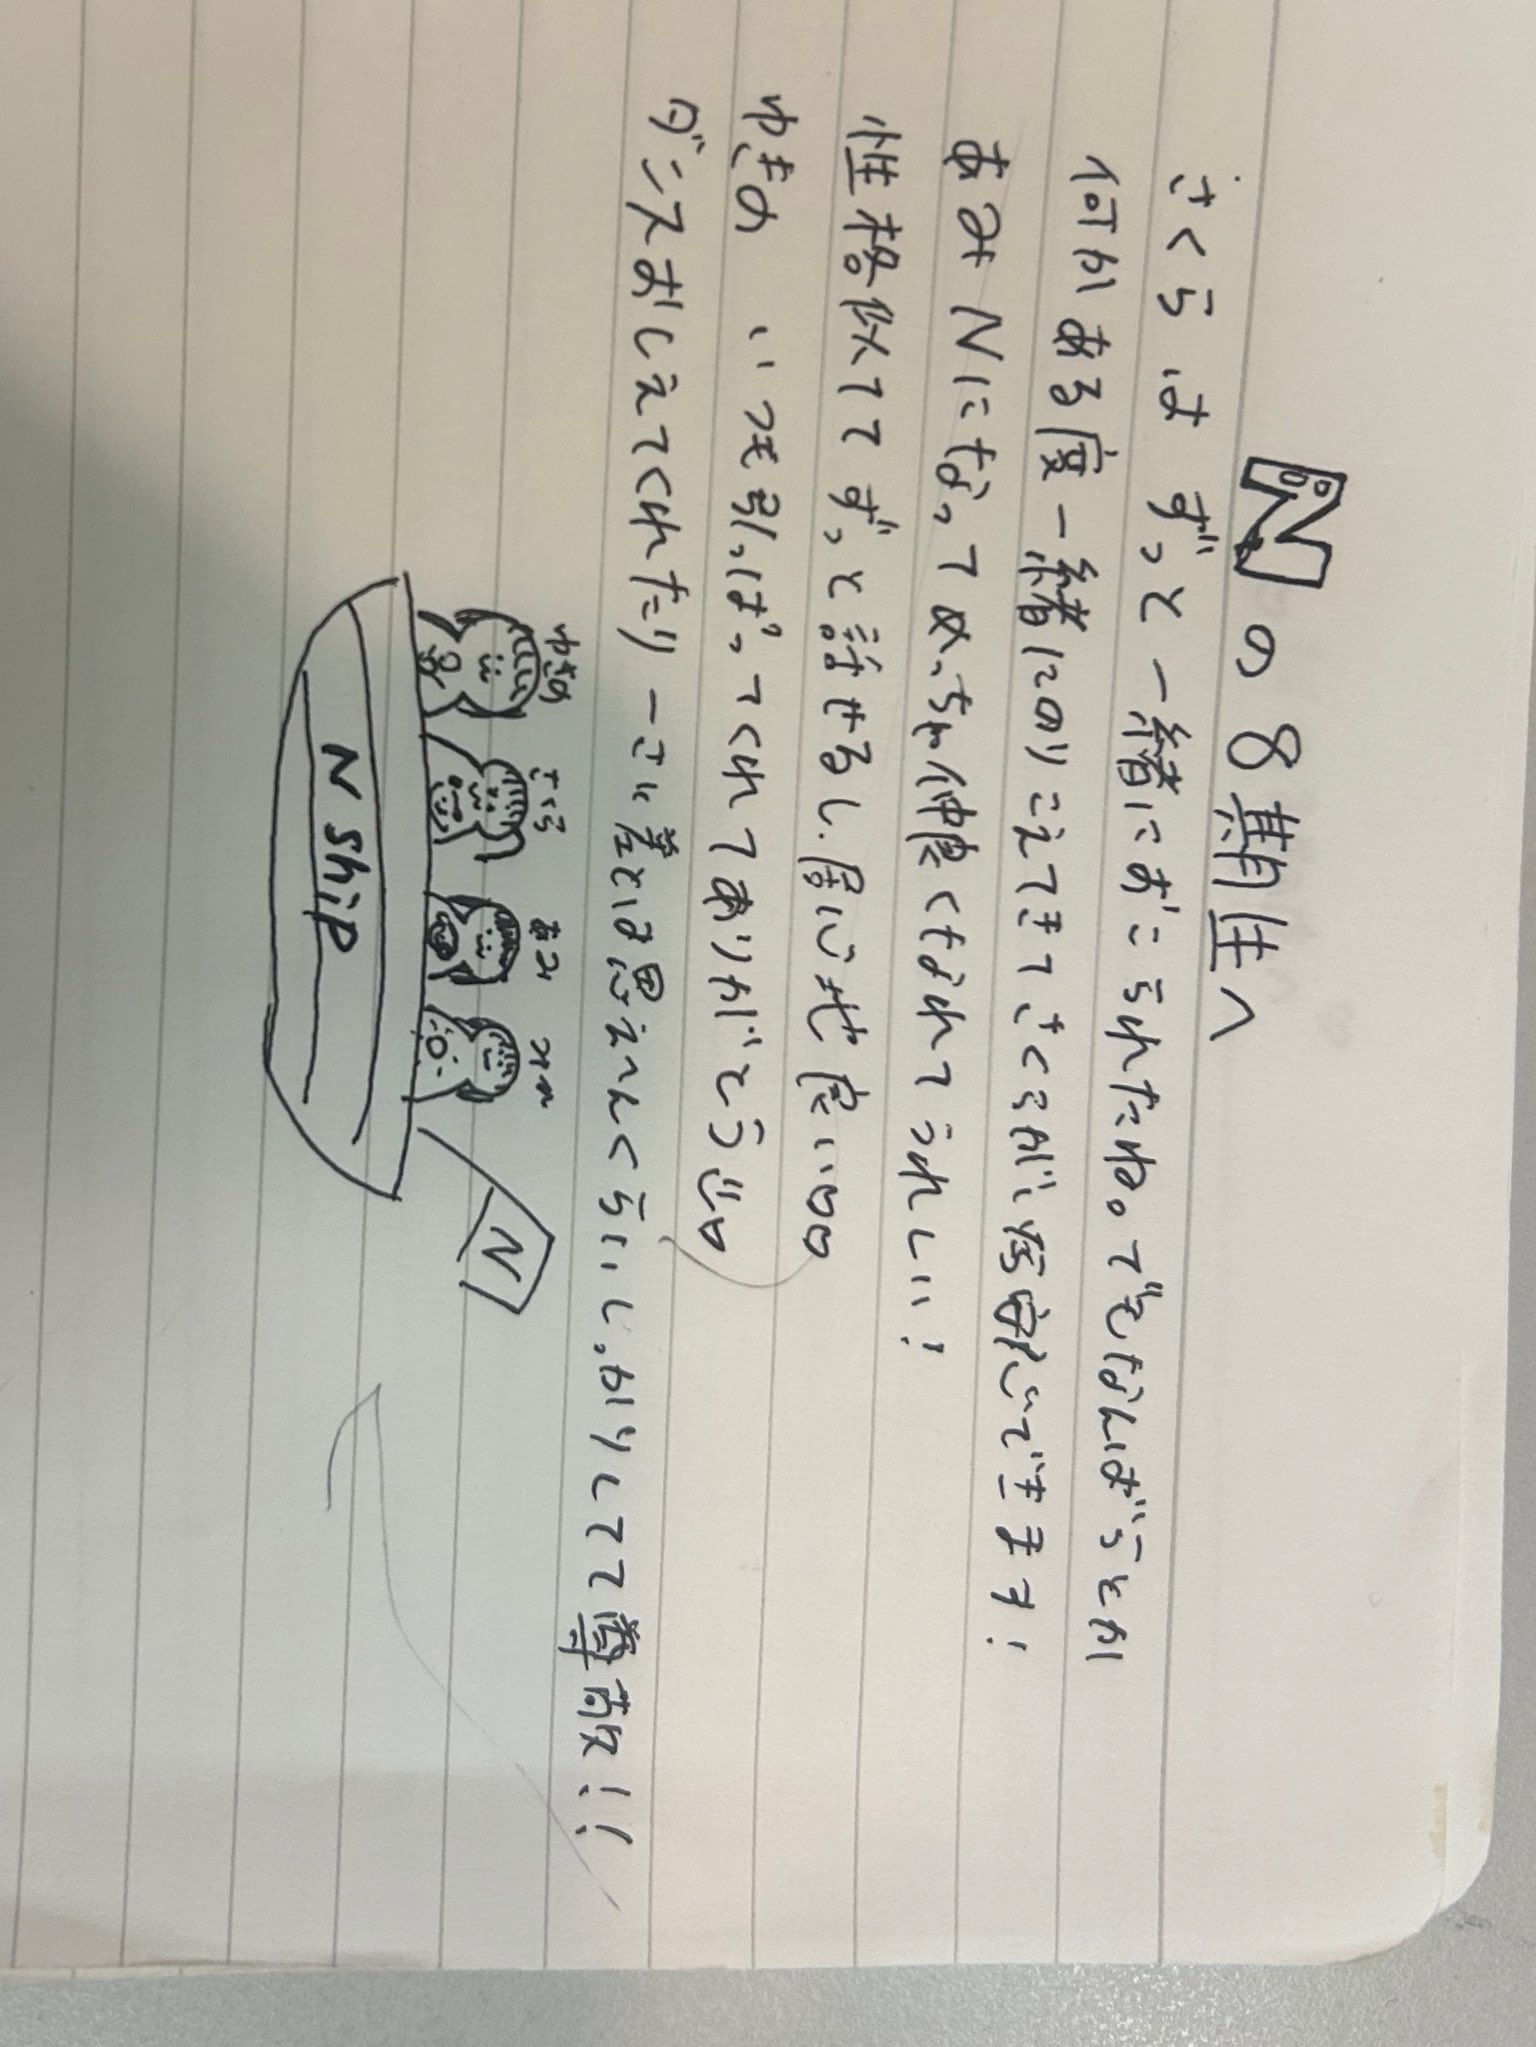 Nの8期生へ
さくらは ずっと一緒におこられたね。でもなんばらとか
何かある度一緒にのりこえてきてさくらが安心できます!
あみ Nになってめっちゃ仲良くなれてうれしい!
性格似ててずっと話せるし.居心地良い
ゆきの いつも引っぱってくれてありがとう
ダンスおしえてくれたり一さい差とは思えんくらいしっかりしてて尊敬!!
ゆきの さくら あみ
N
N ship